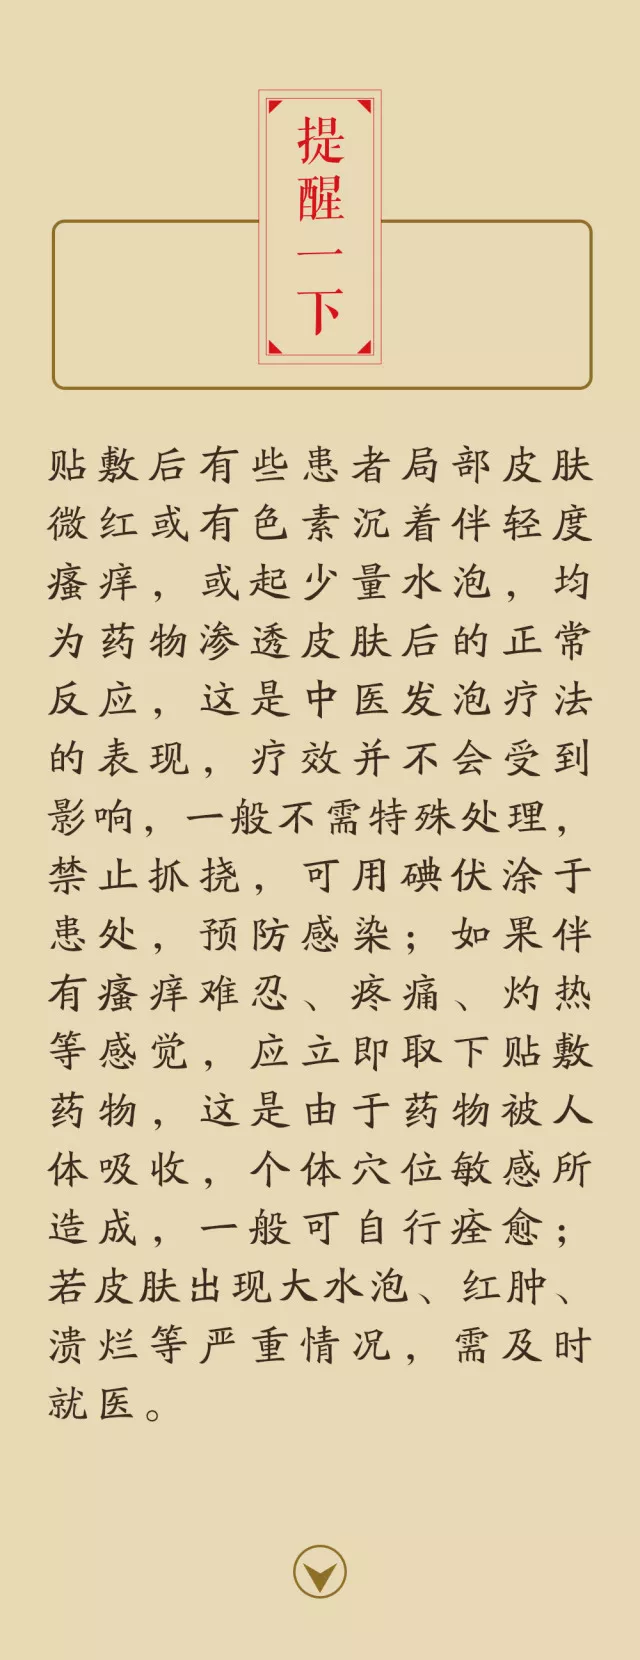 提醒一下
贴敷后有些患者局部皮肤
微红或有色素沉着伴轻度
瘙痒，或起少量水泡，均
为药物渗透皮肤后的正常
反应，这是中医发泡疗法
的表现，疗效并不会受到
影响，一般不需特殊处理，
禁止抓挠，可用碘伏涂于
患处，预防感染；如果伴
有瘙痒难忍、疼痛、灼热
等感觉，应立即取下贴敷
药物，这是由于药物被人
体吸收，个体穴位敏感所
造成，一般可自行痊愈；
若皮肤出现大水泡、红肿、
溃烂等严重情况，需及时
就医。